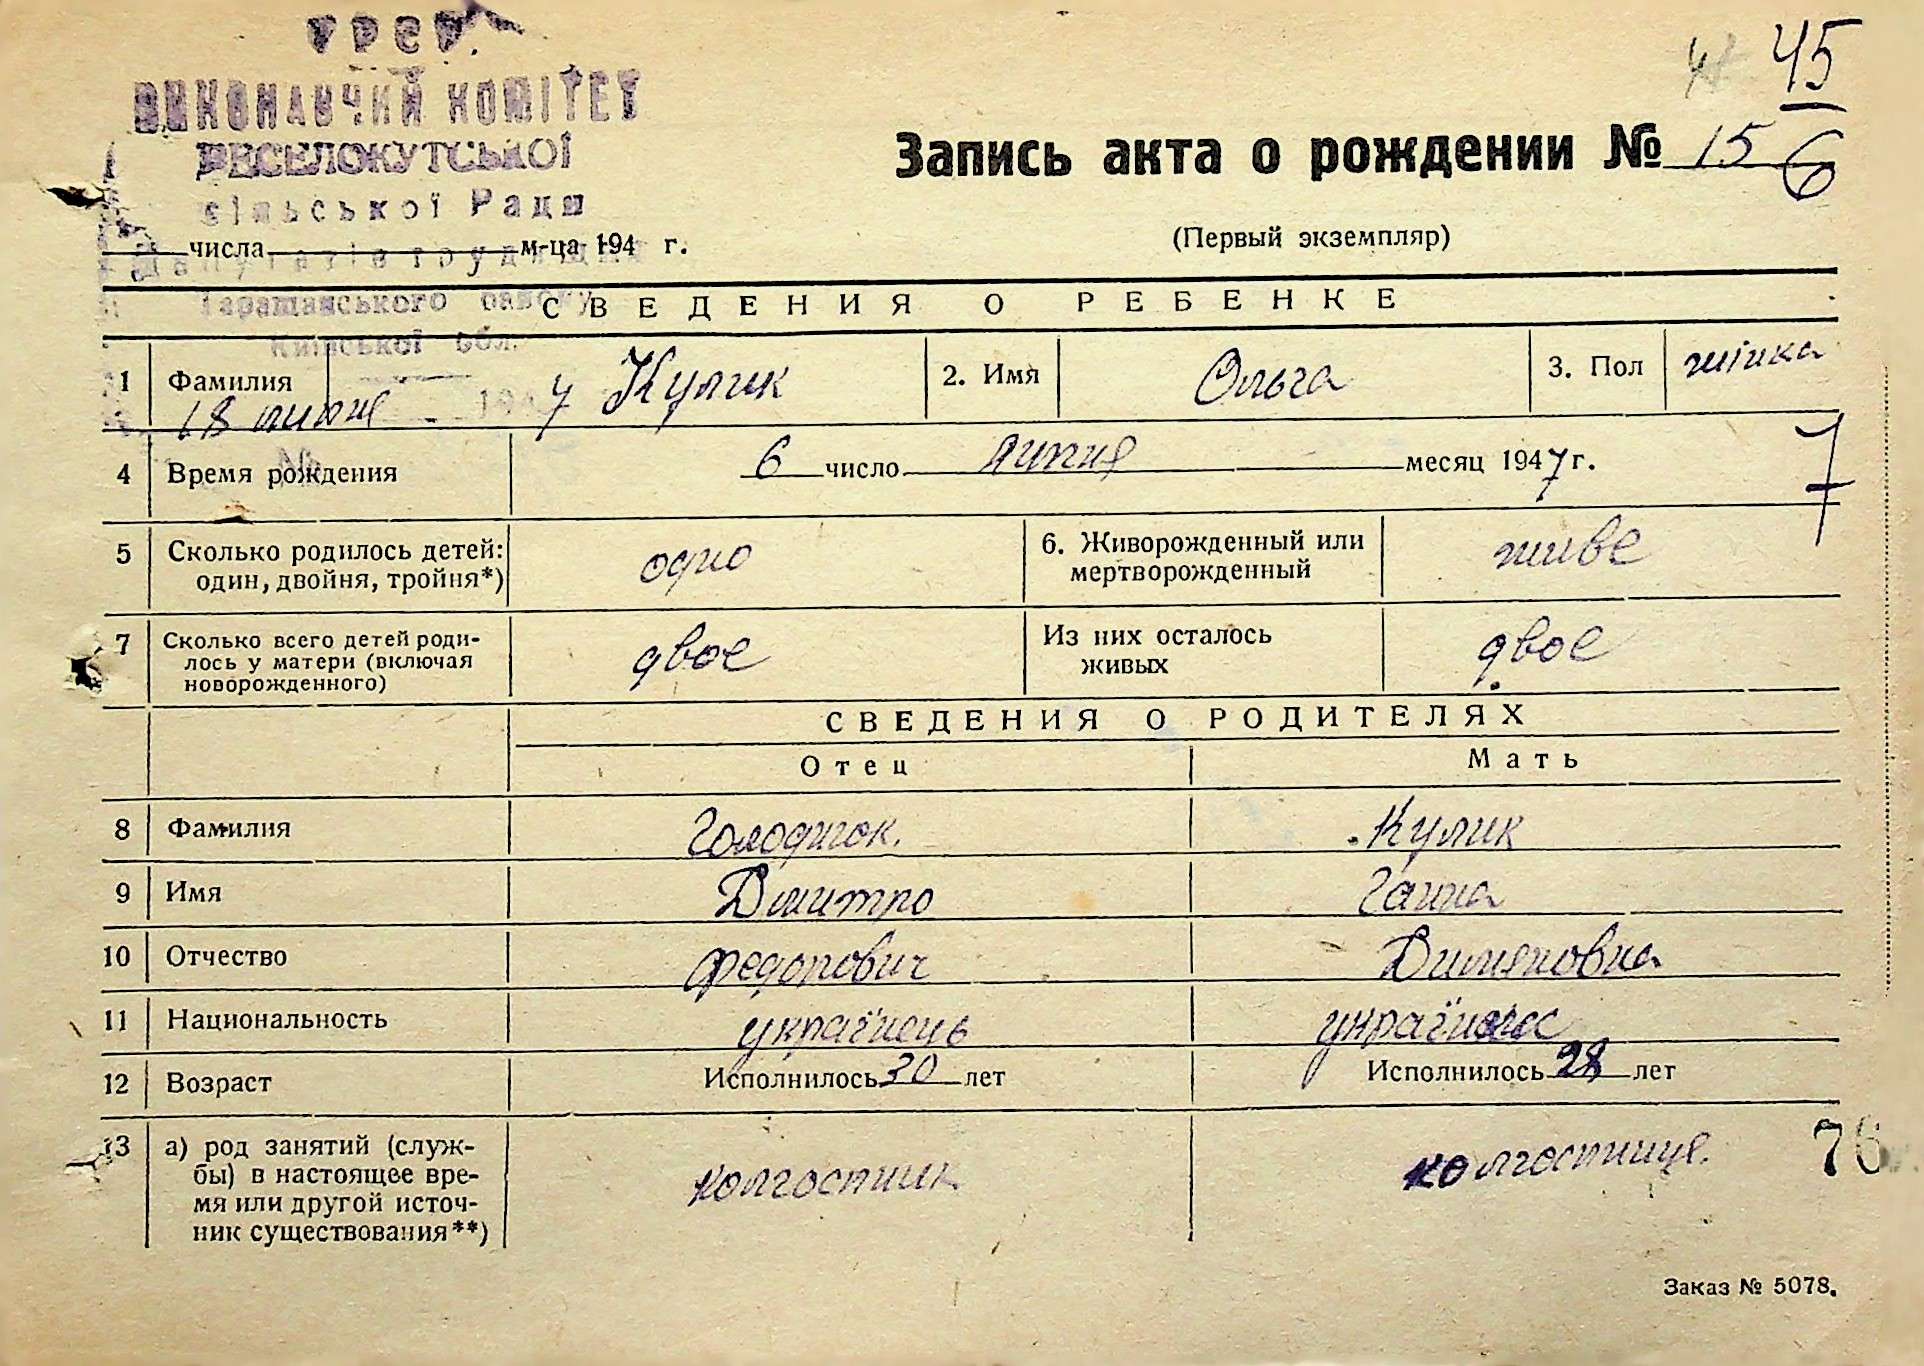 УРСР
ВИКОНАВЧИЙ КОМІТЕТ
ВЕСЕЛОКУТСЬКОЇ
сільської Ради
депутатів трудящих
Таращанського району
Київської обл.
18 липня 1947
№
45
Запись акта о рождении № 15
6
(Первый экземпляр)
числа м-ца 194 г.
СВЕДЕНИЯ О РЕБЕНКЕ
1 Фамилия Кулик 2. Имя Ольга 3. Пол жінка
4 Время рождения 6 число липня месяц 1947 г.
7
5 Сколько родилось детей: один, двойня, тройня*) одно 6. Живорожденный или мертворожденный живе
7 Сколько всего детей родилось у матери (включая новорожденного) двое Из них осталось живых двое
СВЕДЕНИЯ О РОДИТЕЛЯХ
Отец Мать
8 Фамилия Кулик
9 Имя Дмитро Ганна
10 Отчество Федорович
11 Национальность українець українка
12 Возраст Исполнилось 30 лет Исполнилось 28 лет
13 а) род занятий (служ-
бы) в настоящее вре-
мя или другой источ-
ник существования**) колгоспник колгоспниця.
76
Заказ № 5078.